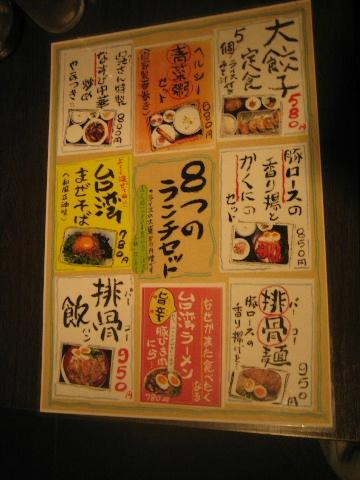 大餃子
定食
5個
580円
ヘルシー
青菜粥
セット
680円
特製
なすび中華
炒め
800円
豚ロースの
香り揚と
かくにの
セット
850円
8つの
ランチセット
台湾
まぜそば
780円
排骨麺
豚ロースの
香り揚げ
950円
なぜかまた食べたくなる
台湾ラーメン
旨辛
豚ひき肉
にら
780円
パーコー
排骨飯
ハン
950円